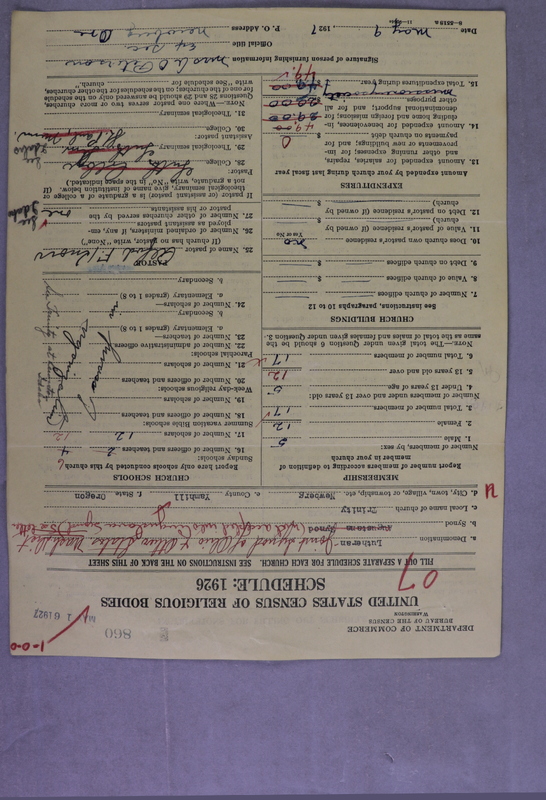 1-0-0
860
MAY 16 1927
DEPARTMENT OF COMMERCE
BUREAU OF THE CENSUS
WASHINGTON
UNITED STATES CENSUS OF RELIGIOUS BODIES
SCHEDULE: 1926
07
FILL OUT A SEPARATE SCHEDULE FOR EACH CHURCH. SEE INSTRUCTIONS ON THE BACK OF THIS SHEET
a. Denomination Lutheran Joint Synod of Ohio & Other States
b. Synod
c. Local name of church Trinity
d. City, town, village, or township, etc. Newberg e. County Yamhill f. State Oregon
MEMBERSHIP
Report number of members according to definition of
member in your church
Number of members, by sex:
1. Male 5
2. Female 12
3. Total number of members 17
Number of members under and over 13 years old:
4. Under 13 years of age 5
5. 13 years old and over 12
6. Total number of members 17
NOTE.—The total given under Question 6 should be the
same as the total of males and females given under Question 3.
CHURCH BUILDINGS
See instructions, paragraphs 10 to 12
7. Number of church edifices
8. Value of church edifices $
9. Debt on church edifices $
10. Does church own pastor's residence no
Yes or No
11. Value of pastor's residence (if owned by
church) $
12. Debt on pastor's residence (if owned by
church) $
EXPENDITURES
Amount expended by your church during last fiscal year
13. Amount expended for salaries, repairs,
and other running expenses; for im-
provements or new buildings; and for
payments on church debt 0
14. Amount expended for benevolences, in-
cluding home and foreign missions; for
denominational support; and for all
other purposes
15. Total expenditures during year 49.00
CHURCH SCHOOLS
Report here only schools conducted by this church
Sunday schools:
16. Number of officers and teachers 4
17. Number of scholars 12
Summer vacation Bible schools:
18. Number of officers and teachers
19. Number of scholars
Week-day religious schools:
20. Number of officers and teachers
21. Number of scholars
Parochial schools:
22. Number of administrative officers
23. Number of teachers
a. Elementary (grades 1 to 8)
b. Secondary
24. Number of scholars—
a. Elementary (grades 1 to 8)
b. Secondary
PASTOR
25. Name of pastor
(If church has no pastor, write "None")
26. Number of ordained ministers, if any, em-
ployed as assistant pastors
27. Number of other churches served by the
pastor or his assistants one
If pastor (or assistant pastor) is a graduate of a college or
theological seminary, give name of institution below. (If
not a graduate, write "No" in the space indicated.)
Pastor:
28. College
29. Theological seminary
Assistant pastor:
30. College
31. Theological seminary
NOTE.—Where one pastor serves two or more churches,
Questions 28 and 29 should be answered only on the schedule
for one of the churches; on the schedule for the other churches,
write "See schedule for church."
Signature of person furnishing information
Official title
P. O. Address Newberg Ore
Date May 9, 1927